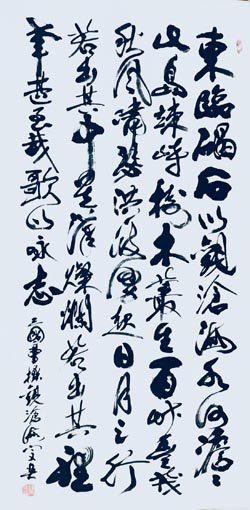 東臨碣石以觀滄海水何澹々
山島竦峙樹木叢生百草豐茂
秋風蕭瑟洪波湧起日月之行
若出其中星漢燦爛若出其裡
幸甚至哉歌以詠志
三國曹操觀滄海